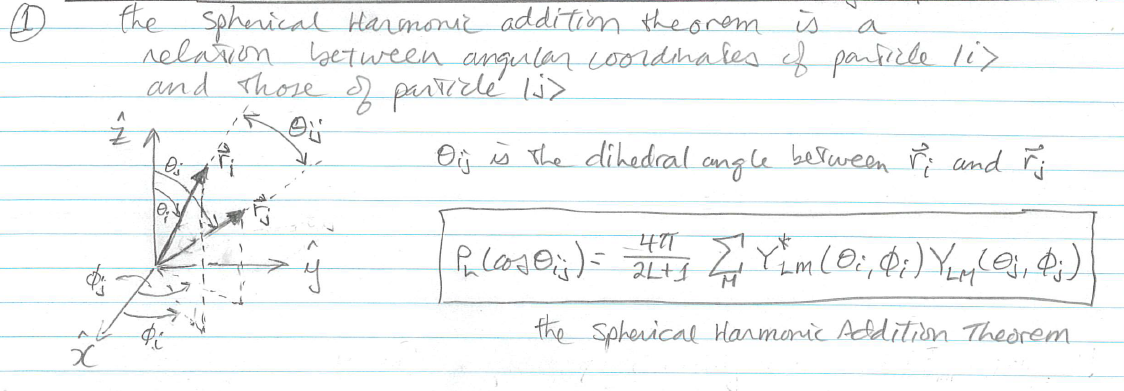 ① the Spherical Harmonic addition theorem is a
relation between angular coordinates of particle |i>
and those of particle |j>
ẑ θij
θj r⃗i
θi r⃗j
θij is the dihedral angle between r⃗i and r⃗j
ŷ
PL(cosθij) = 4π/2L+1 ΣM Y*LM(θi, ϕi) YLM(θj, ϕj)
ϕj
ϕi
x̂
the Spherical Harmonic Addition Theorem